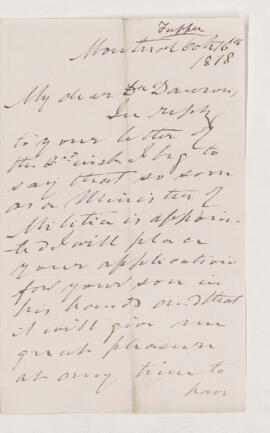 Tupper
Montreal Oct 16th
1878
My dear Dr Dawson,
In reply
to your letter of
the 2nd inst I beg to
say that so soon
as a Minister of
Militia is appoin-
ted I will place
your application
for your son in
his hands and that
it will give me
great pleasure
at any time to
have